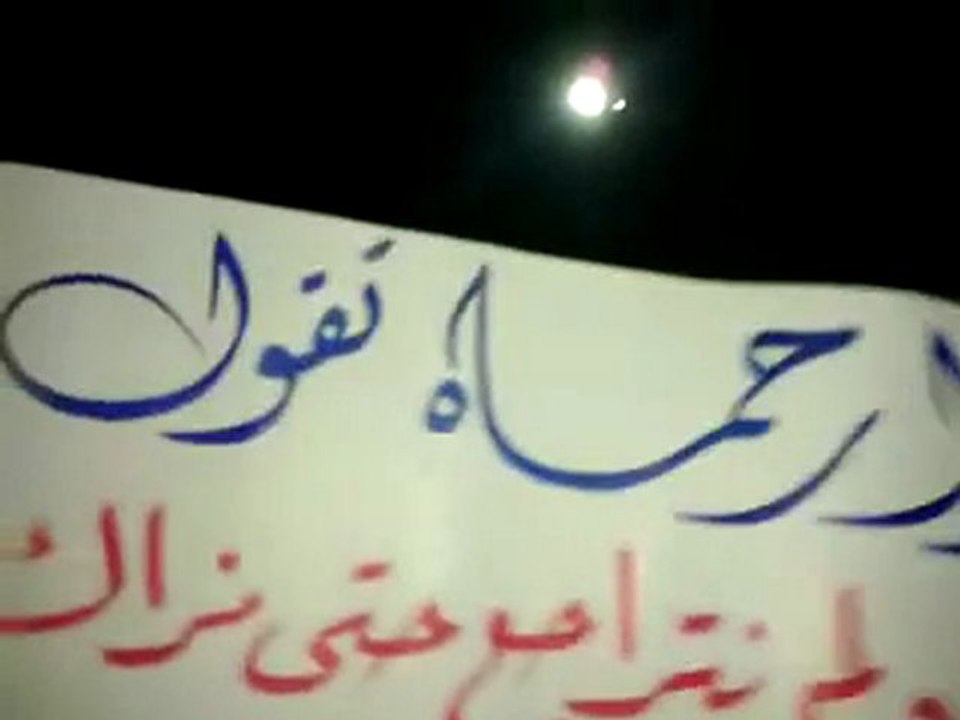 حماه تقول
نتراجع حتى نراك